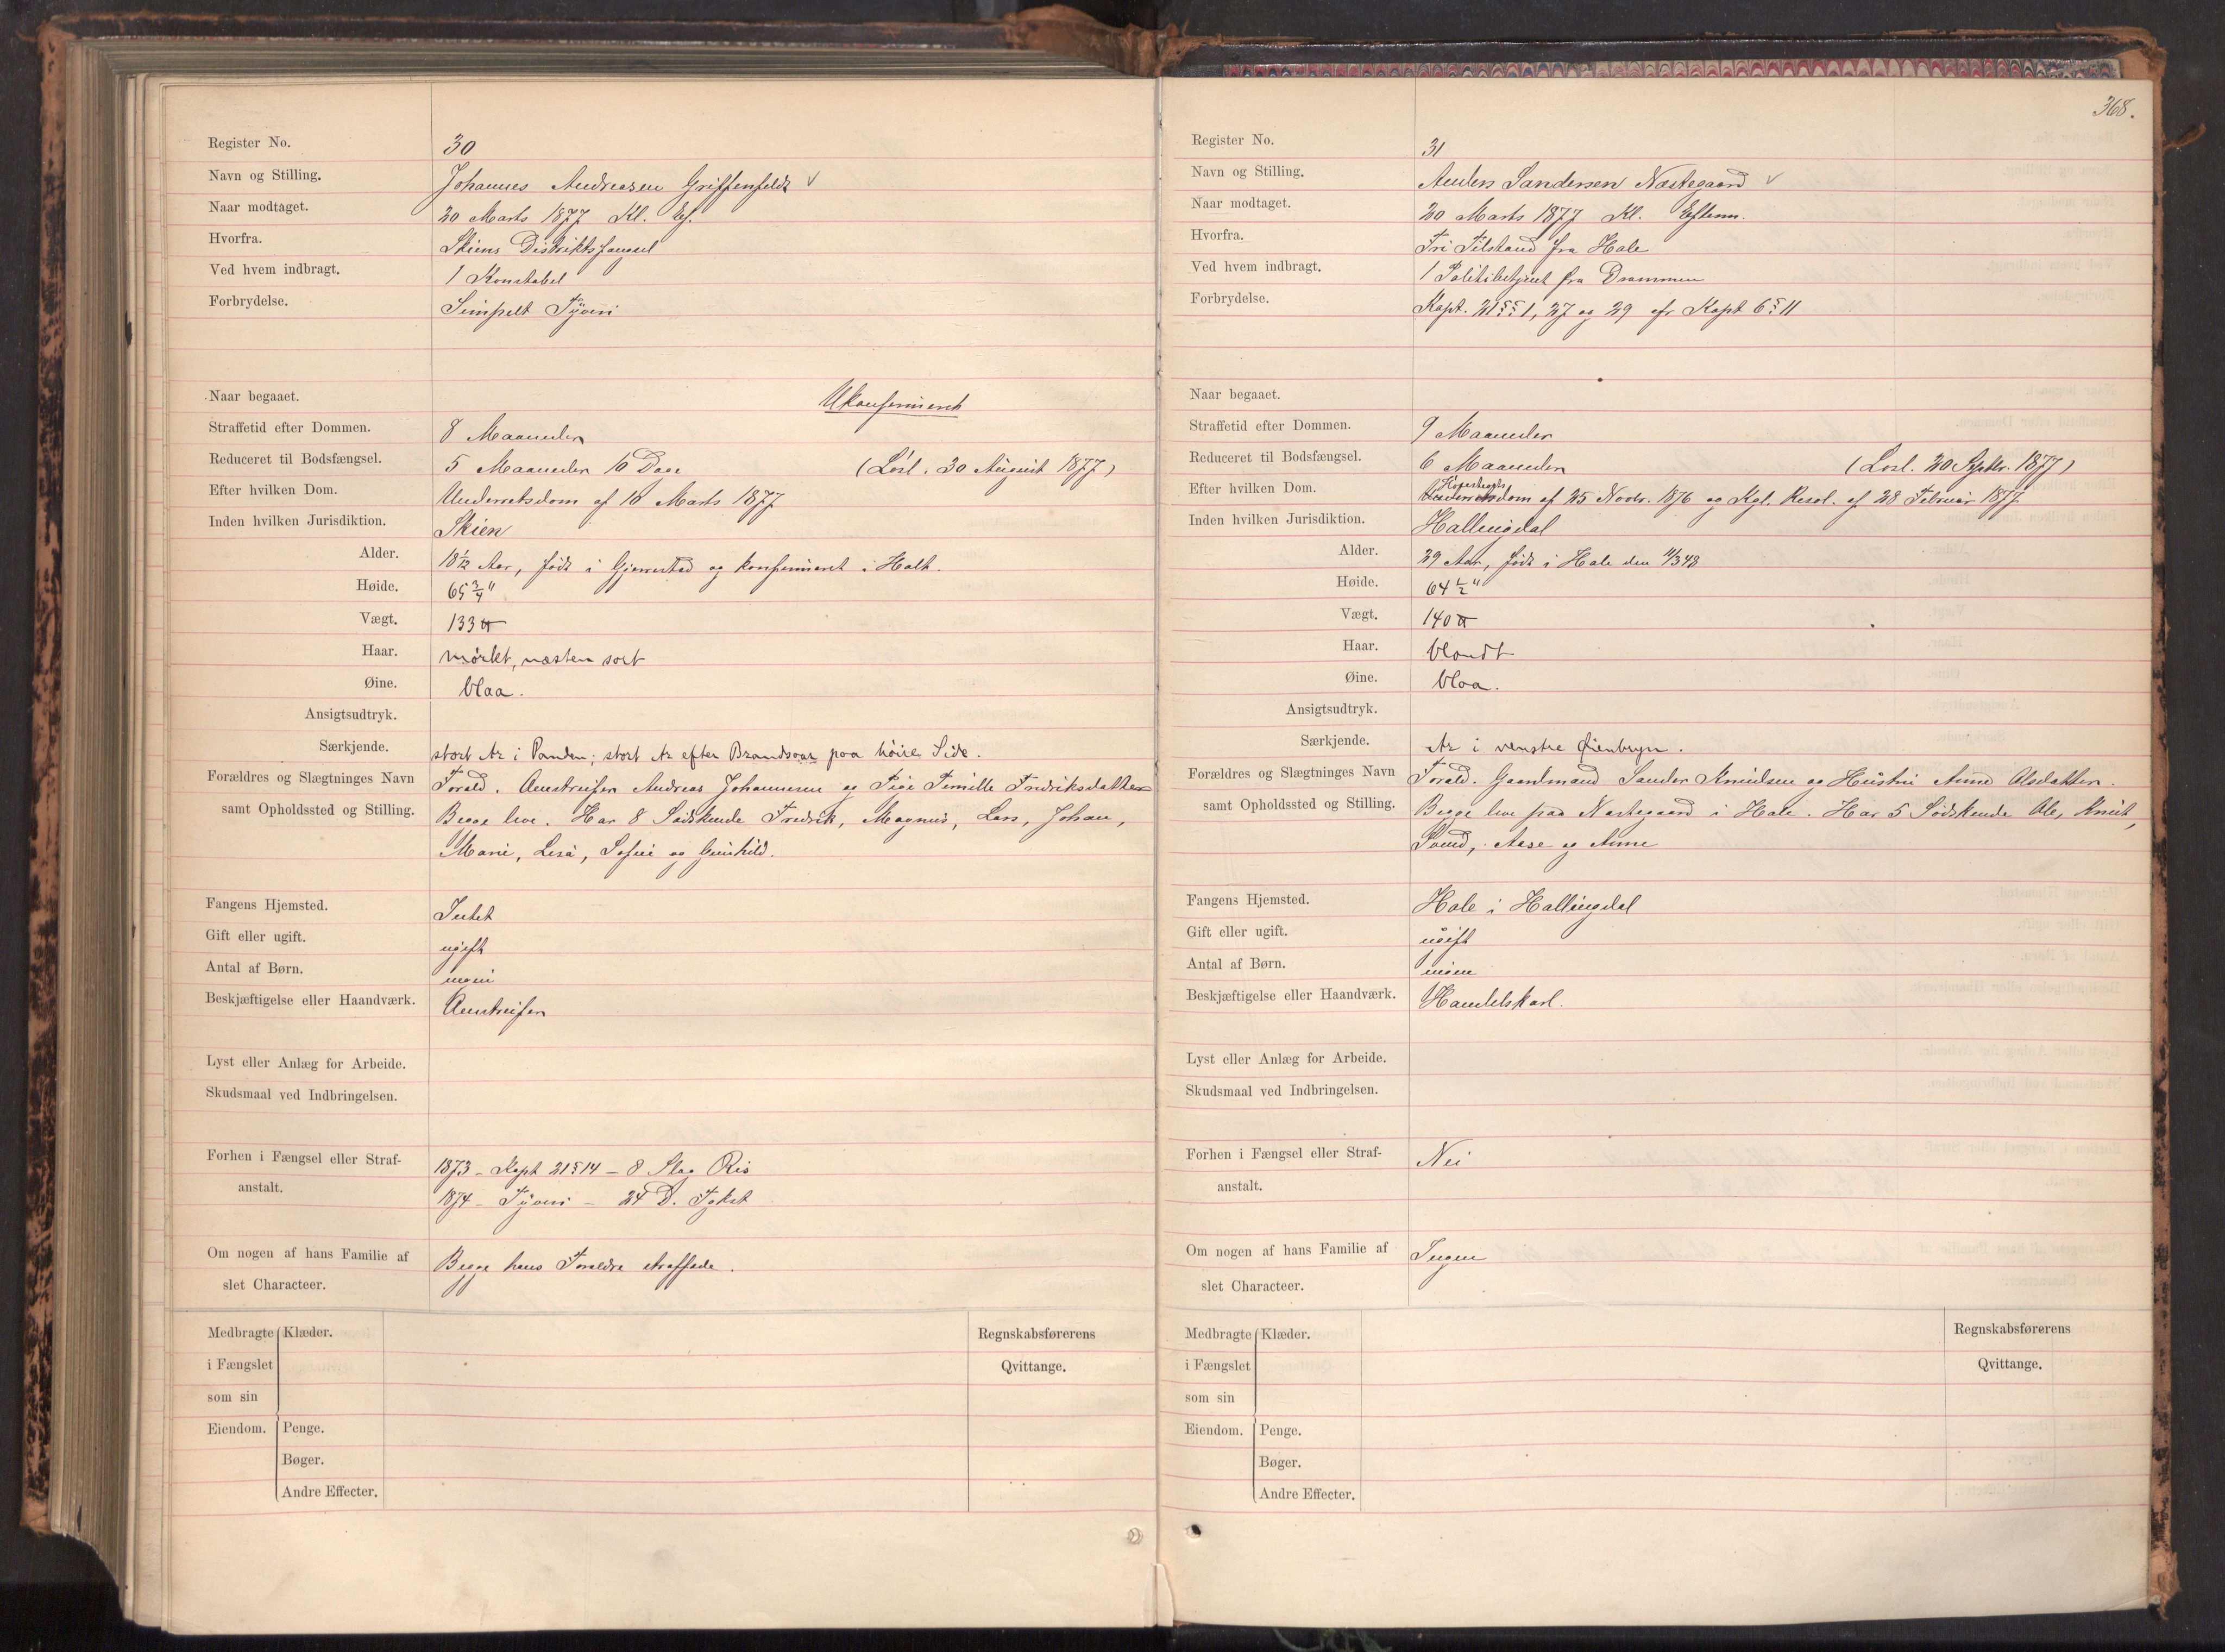 Register No. 30
Navn og Stilling. Johannes Andreasen Griffenfeldt ✓
Naar modtaget. 20 Marts 1877 Kl. Ef.
Hvorfra. Skiens Distriktsfængsel
Ved hvem indbragt. 1 Konstabel
Forbrydelse. Simpelt Tyveri
Naar begaaet. Ukonfirmeret
Straffetid efter Dommen. 8 Maaneder
Reduceret til Bodsfængsel. 5 Maaneder 10 Dage (Løsl. 30 August 1877)
Efter hvilken Dom. Underretsdom af 10 Marts 1877
Inden hvilken Jurisdiktion. Skien
Alder. 18 1/12 Aar, født i Gjerrestad og konfirmeret i Holt.
Høide. 65 3/4"
Vægt. 133 ℔
Haar. mørkt, næsten sort
Øine. blaa.
Ansigtsudtryk.
Særkjende. stort Ar i Panden; stort Ar efter Brandsaar paa høire Side.
Forældres og Slægtninges Navn Foræld. Omstreifer Andreas Johannesen og Pige Pernille Fredriksdatter
samt Opholdssted og Stilling. Begge leve. Har 8 Sødskende Fredrik, Magnus, Lars, Johan,
Marie, Lesa, Sofie og Gunhild.
Fangens Hjemsted. Intet
Gift eller ugift. ugift
Antal af Børn. ingen
Beskjæftigelse eller Haandværk. Omstreifer
Lyst eller Anlæg for Arbeide.
Skudsmaal ved Indbringelsen.
Forhen i Fængsel eller Straf- 1873 – Kapt 21 § 14 – 8 Slag Ris
anstalt. 1874 – Tyveri – 24 D. Tgkst
Om nogen af hans Familie af Begge hans Forældre straffede.
slet Characteer.
Medbragte Klæder. Regnskabsførerens
i Fængslet Qvittange.
som sin
Eiendom. Penge.
Bøger.
Andre Effecter.
368.
Register No. 31
Navn og Stilling. Anders Sandersen Næstegaard ✓
Naar modtaget. 20 Marts 1877 Kl. Efterm.
Hvorfra. Fri Tilstand fra Hole
Ved hvem indbragt. 1 Politibetjent fra Drammen
Forbrydelse. Kapt. 21 §§ 1, 27 og 29 cfr Kapt 6 § 11
Naar begaaet.
Straffetid efter Dommen. 9 Maaneder
Reduceret til Bodsfængsel. 6 Maaneder (Løsl. 20 Septbr. 1877)
Høiesterets
Efter hvilken Dom. Underretsdom af 25 Novbr. 1876 og Kgl. Resol. af 28 Februar 1877
Inden hvilken Jurisdiktion. Hallingdal
Alder. 29 Aar, født i Hole den 11/3 48
Høide. 64 1/2"
Vægt. 140 ℔
Haar. blondt
Øine. blaa.
Ansigtsudtryk.
Særkjende. Ar i venstre Øienbryn.
Forældres og Slægtninges Navn Foræld. Gaardmand Sander Knudsen og Hustru Anne Olsdatter.
samt Opholdssted og Stilling. Begge leve paa Næstegaard i Hole. Har 5 Sødskende Ole, Knut,
Svend, Aase og Anne
Fangens Hjemsted. Hole i Hallingdal
Gift eller ugift. ugift
Antal af Børn. ingen
Beskjæftigelse eller Haandværk. Handelskarl.
Lyst eller Anlæg for Arbeide.
Skudsmaal ved Indbringelsen.
Forhen i Fængsel eller Straf- Nei
anstalt.
Om nogen af hans Familie af Ingen
slet Characteer.
Medbragte Klæder. Regnskabsførerens
i Fængslet Qvittange.
som sin
Eiendom. Penge.
Bøger.
Andre Effecter.